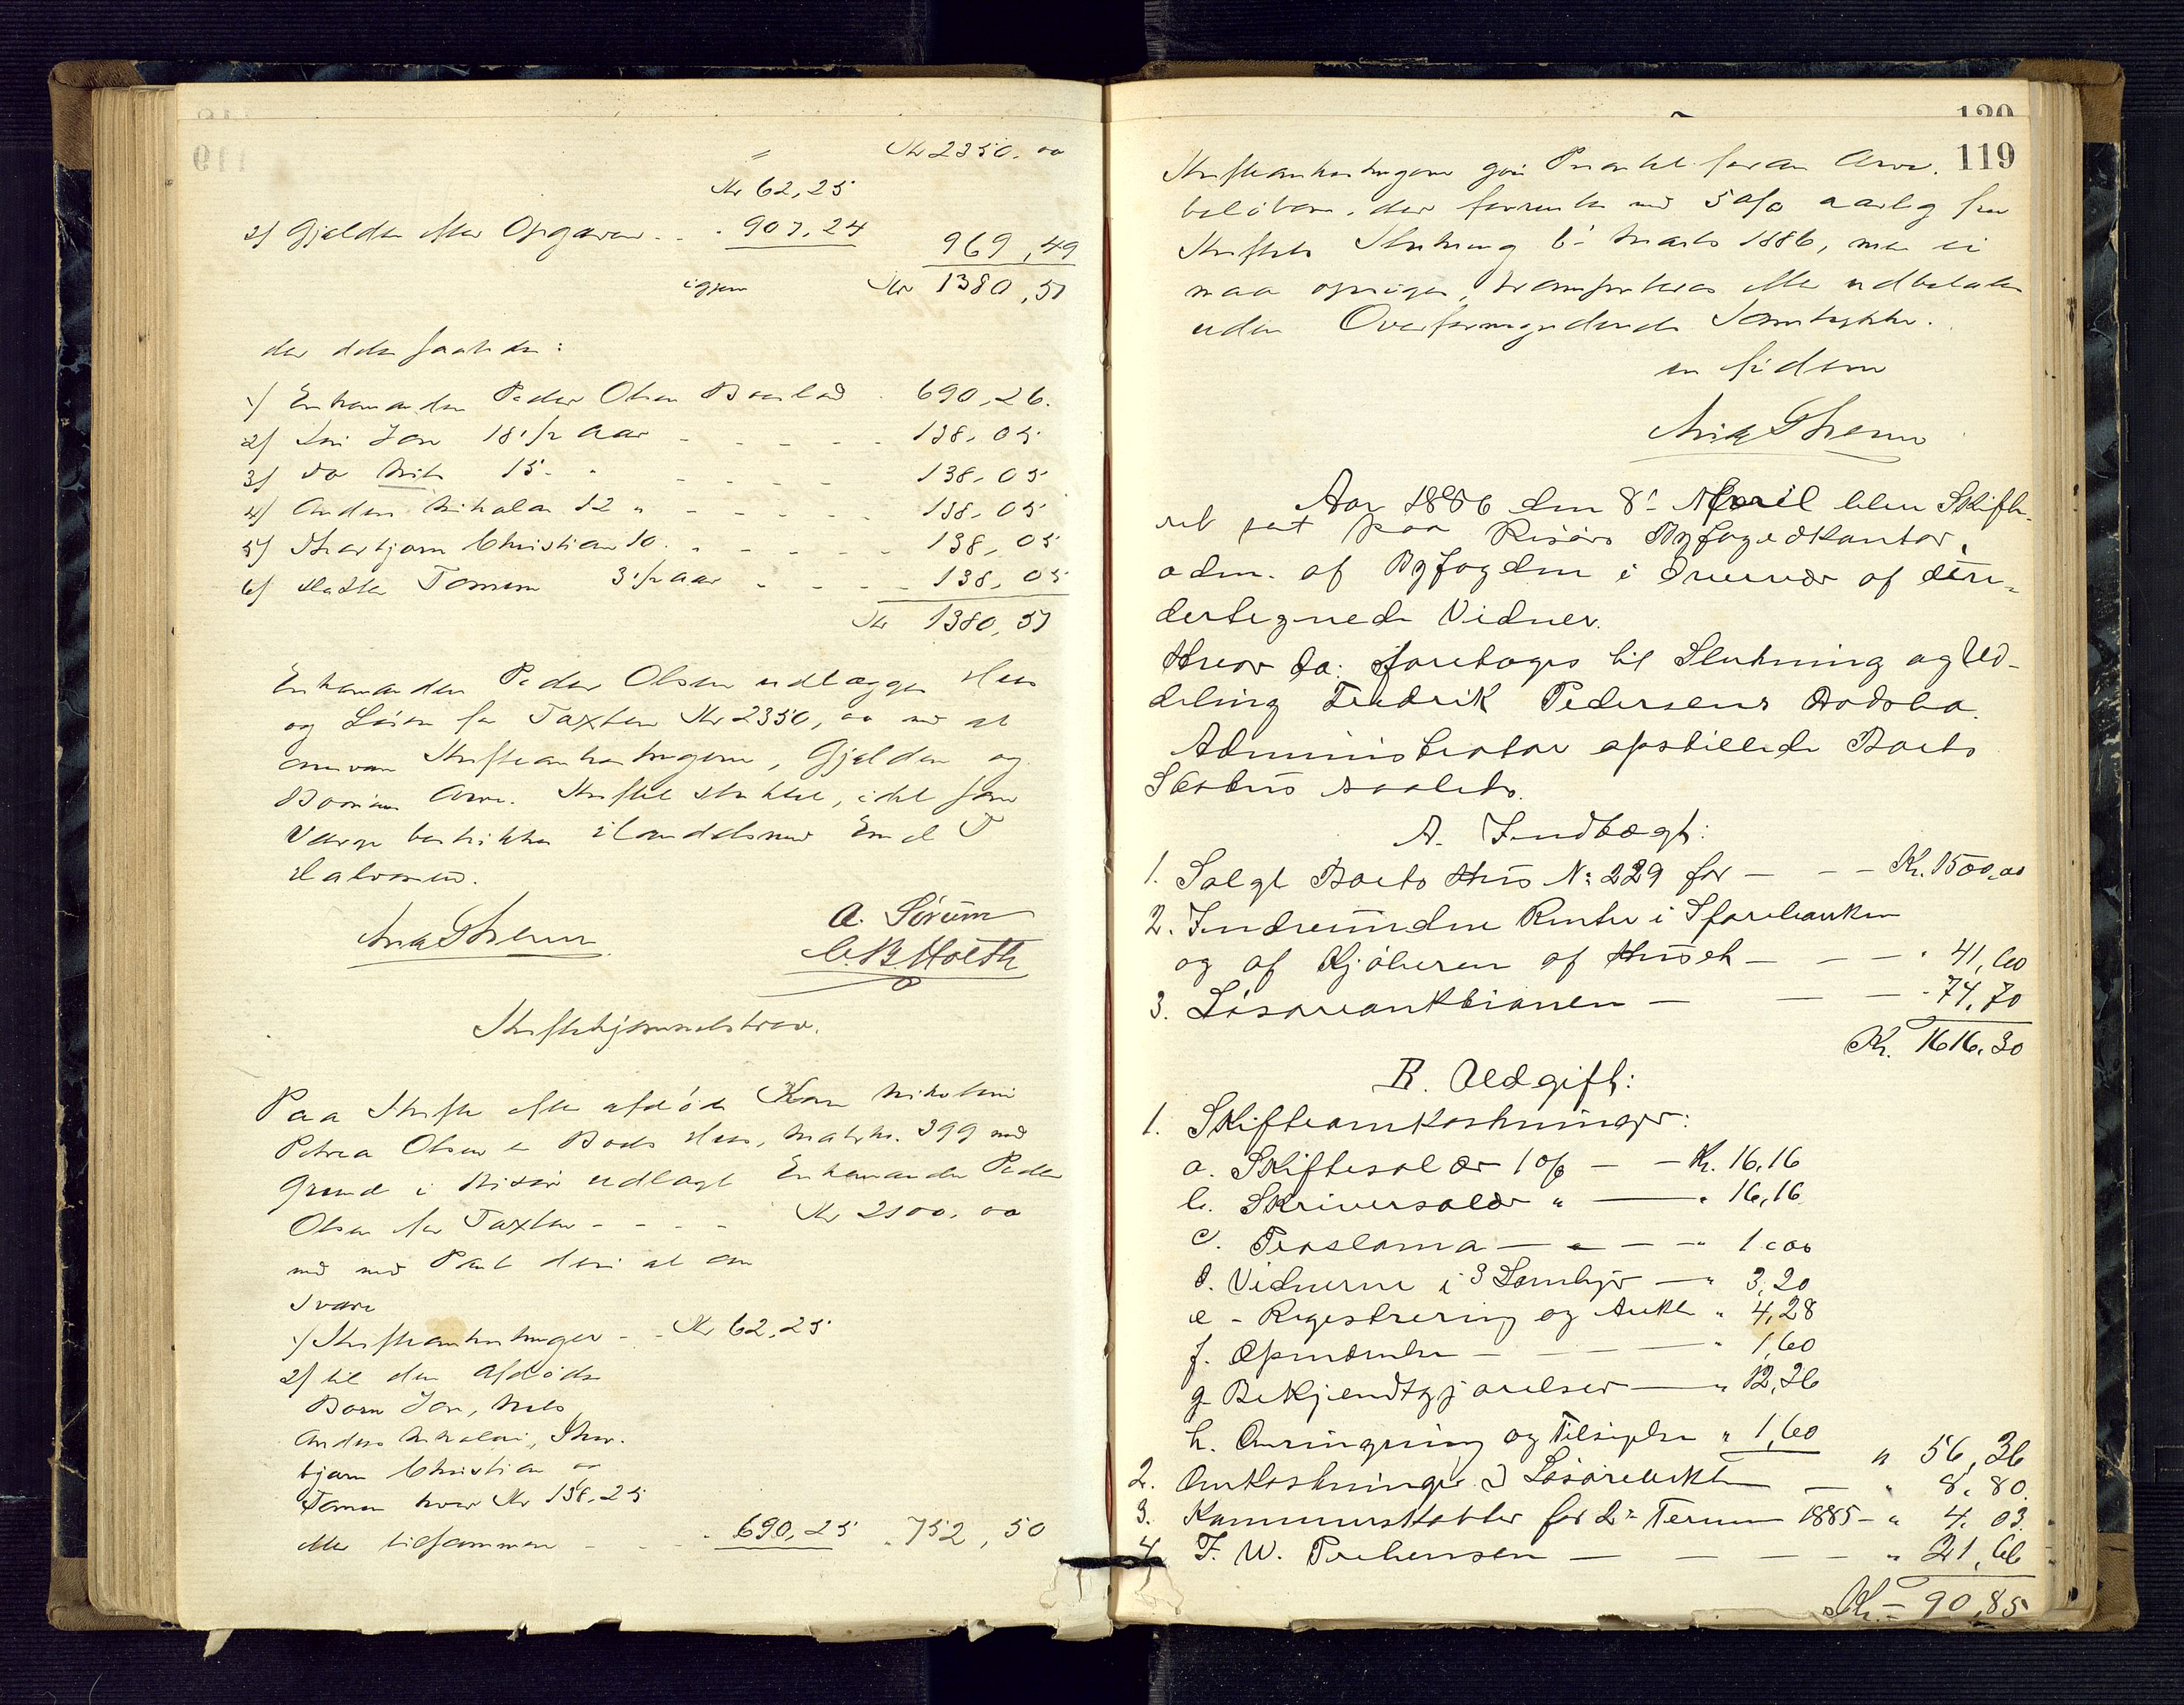 " Kr 2350. 00
Kr 62,25
2) Gjelden efter Opgaven - - 907,24 969,49
igjen Kr 1380,51
der deles saaledes:
1) Enkemanden Peder Olsen 690,26.
2) Søn Jon 18 1/2 Aar - - - - 138,05
3) do Nils 15 - " - - - - 138,05
4) Anders Nikolai 12 " - - - - 138,05
5) Thorbjørn Christian 10 " - - - - 138,05
6) Datter Tomine 3 1/2 Aar - - - - 138,05
Kr 1380,51
Enkemanden Peder Olsen udlægges Hus
og Løsøre for Taxten Kr 2350,00 mod at
Skifteomkostningerne, Gjelden og
Børnenes Arv. Skiftet sluttet, idet som
Værge beskikkes Handelsmand Emil T
Halvorsen.
A. Sørum
C. B. Holth
Skiftehjemmelsbrev.
Paa Skifte efter afdøde Karen Nikoline
Petrea Olsen er Boets Hus, Matr No. 399 med
Grund i Risør udlagt Enkemanden Peder
Olsen for Taxten - - - - Kr 2100,00
mod med Pant deri at
svare
1) Skifteomkostninger - - Kr 62,25
2) til den Afdødes
Børn Jon, Nils,
Anders Nikolai, Thor-
bjørn Christian og
Tomine hver Kr 138,25
eller tilsammen - - - 690,25 . 752,50
119
120
Skifteomkostningerne gives Prioritet foran Arve-
beløbene, der forrentes med 5 o/o aarlig fra
Skiftets Slutning 6' Marts 1886, men ei
maa opsiges, transporteres eller udbetales
uden Overformynderiets Samtykke.
in fidem
Aar 1886 den 8' April blev Skifte-
ret sat paa Risørs Byfogedkontor,
adm. af Byfogden i Overvær af un-
dertegnede Vidner.
Hvor da: foretoges til Slutning og Ud-
deling Fredrik Pedersens Dødsbo.
Administrator opstillede Boets
Status saaledes.
A. Indtægt:
1. Solgt Boets Hus No 229 for - - - Kr. 1500,00
2. Indvundne Renter i Sparebanken
og af Kjøberen af Huset - - - " 41,60
3. Løsøreauktionen - - - " 74,70
Kr. 1616,30
B. Udgift:
1. Skifteomkostninger:
a. Skiftesalær 1 o/o - - Kr. 16,16
b. Skriversalær " - " 16,16
c. Proclama - - - " 1,00
d. Vidnerne i 3 Samlinger - " 3,20
e - Registrering og Auktion " 4,28
f. Opnævnelse - - - " 1,60
g Bekjendtgjørelser - " 12,36
h. Omringning og Tilsigelse " 1,60 " 56,36
2. Omkostninger v Løsøreauktion - " 8,80.
3. Kammerskatter for 2' Termin 1885 - " 4,03.
4 F. W. - - - - " 21,66
Kr. - 90,85